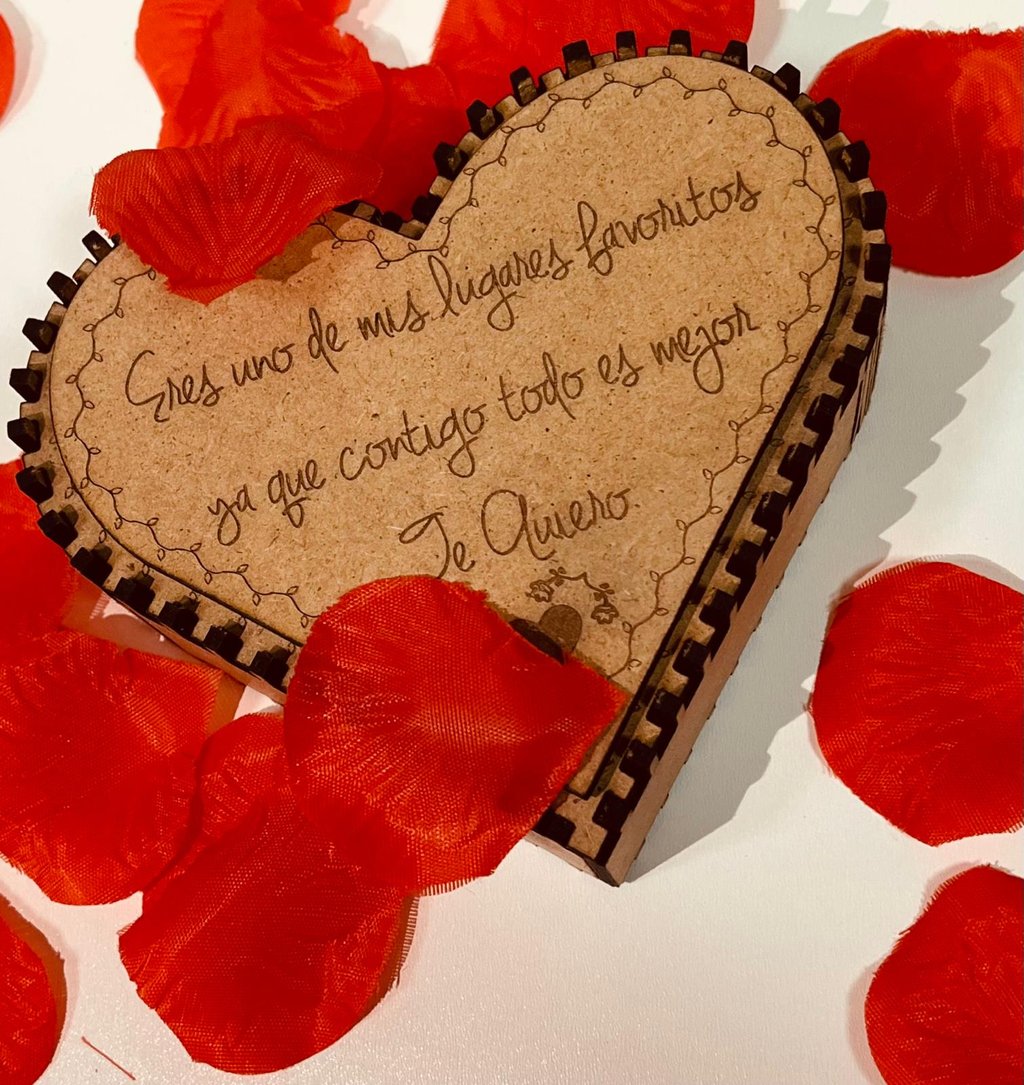 Eres uno de mis lugares favoritos
ya que contigo todo es mejor
Te Quiero